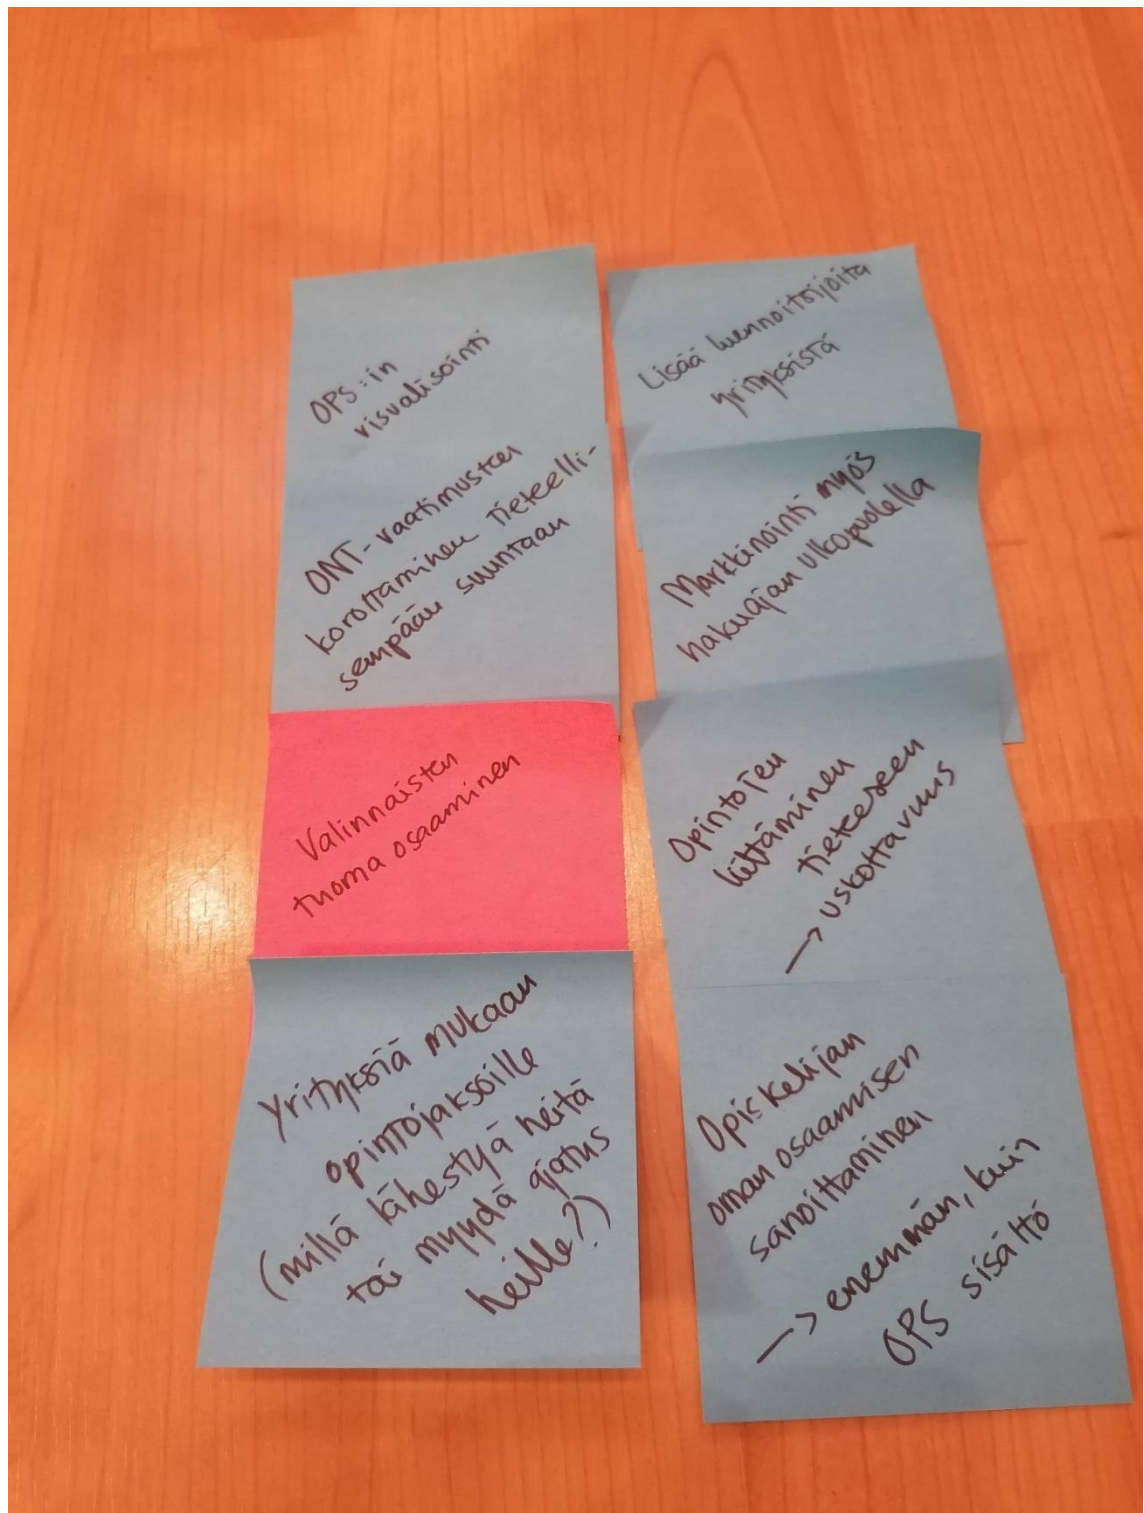 OPS:in
visualisointi
ONT-vaatimusten
korottaminen tieteelli-
sempään suuntaan
Valinnaisten
tuoma osaaminen
Yrityksiä mukaan
opintojaksoille
(miltä lähestyä heitä
tai myydä ajatus
heille?)
Lisää luennoitsijoita
yrityksistä
Markkinointi myös
hakuajan ulkopuolella
Opintojen
liittäminen
tieteeseen
→ uskottavuus
Opiskelijan
oman osaamisen
sanoittaminen
→ enemmän, kuin
OPS sisältö